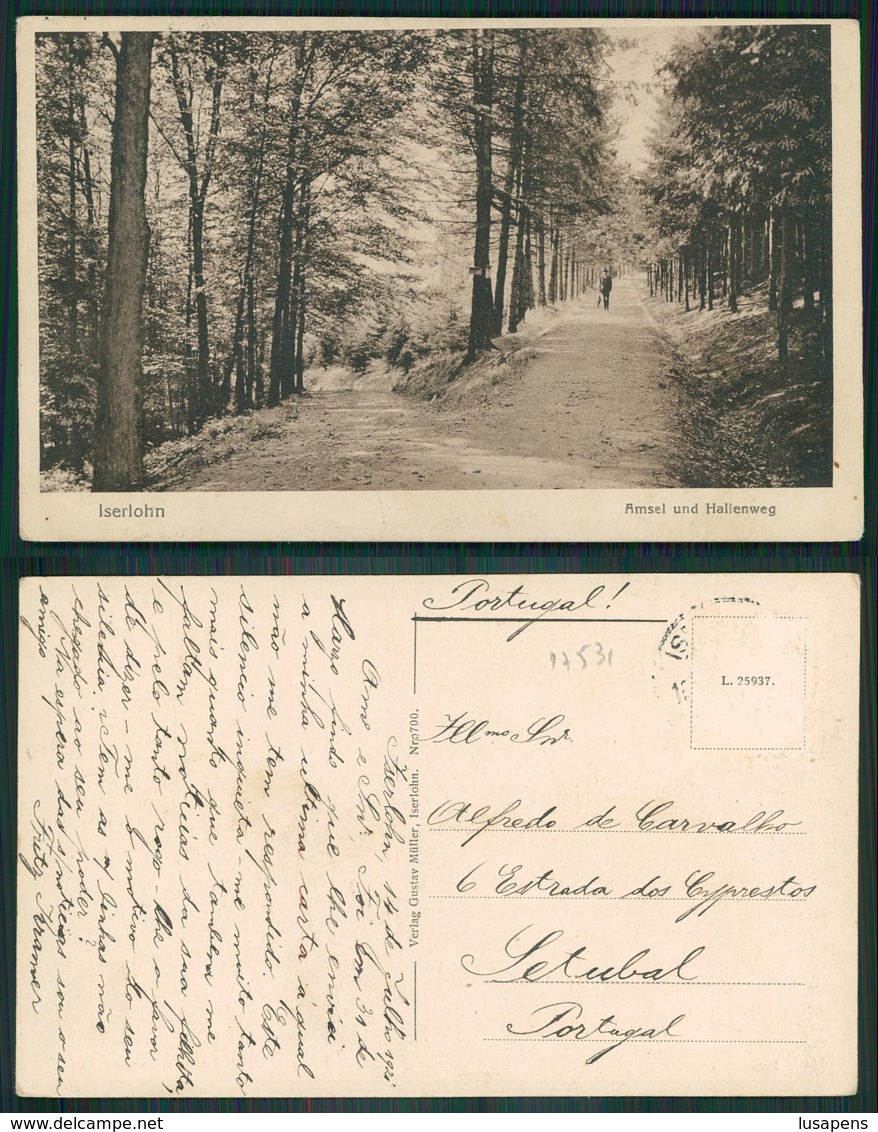 Iserlohn
Amsel und Hallenweg
Portugal!
17531
L. 25937.
Illmo Snr.
Alfredo de Carvalho
6 Estrada dos Cyprestos
Setubal
Portugal
Verlag Gustav Müller, Iserlohn. Nr. 700.
Iserlohn, 14 de Julho 1921
Amo e Snr. Foi em 31 de
Março findo que lhe enviei
a minha ultima carta á qual
não me tem respondido. Este
silencio inquieta-me muito tanto
mais quanto que tambem me
faltam noticias da sua filhita,
e pelo tanto rogo-lhe o favor
de dizer-me o motivo do seu
silencio. Tem as m/ linhas não
chegado ao seu poder?
Na espera das s/ noticias sou o seu
amigo
Fritz Kramer
www.delcampe.net
lusapens